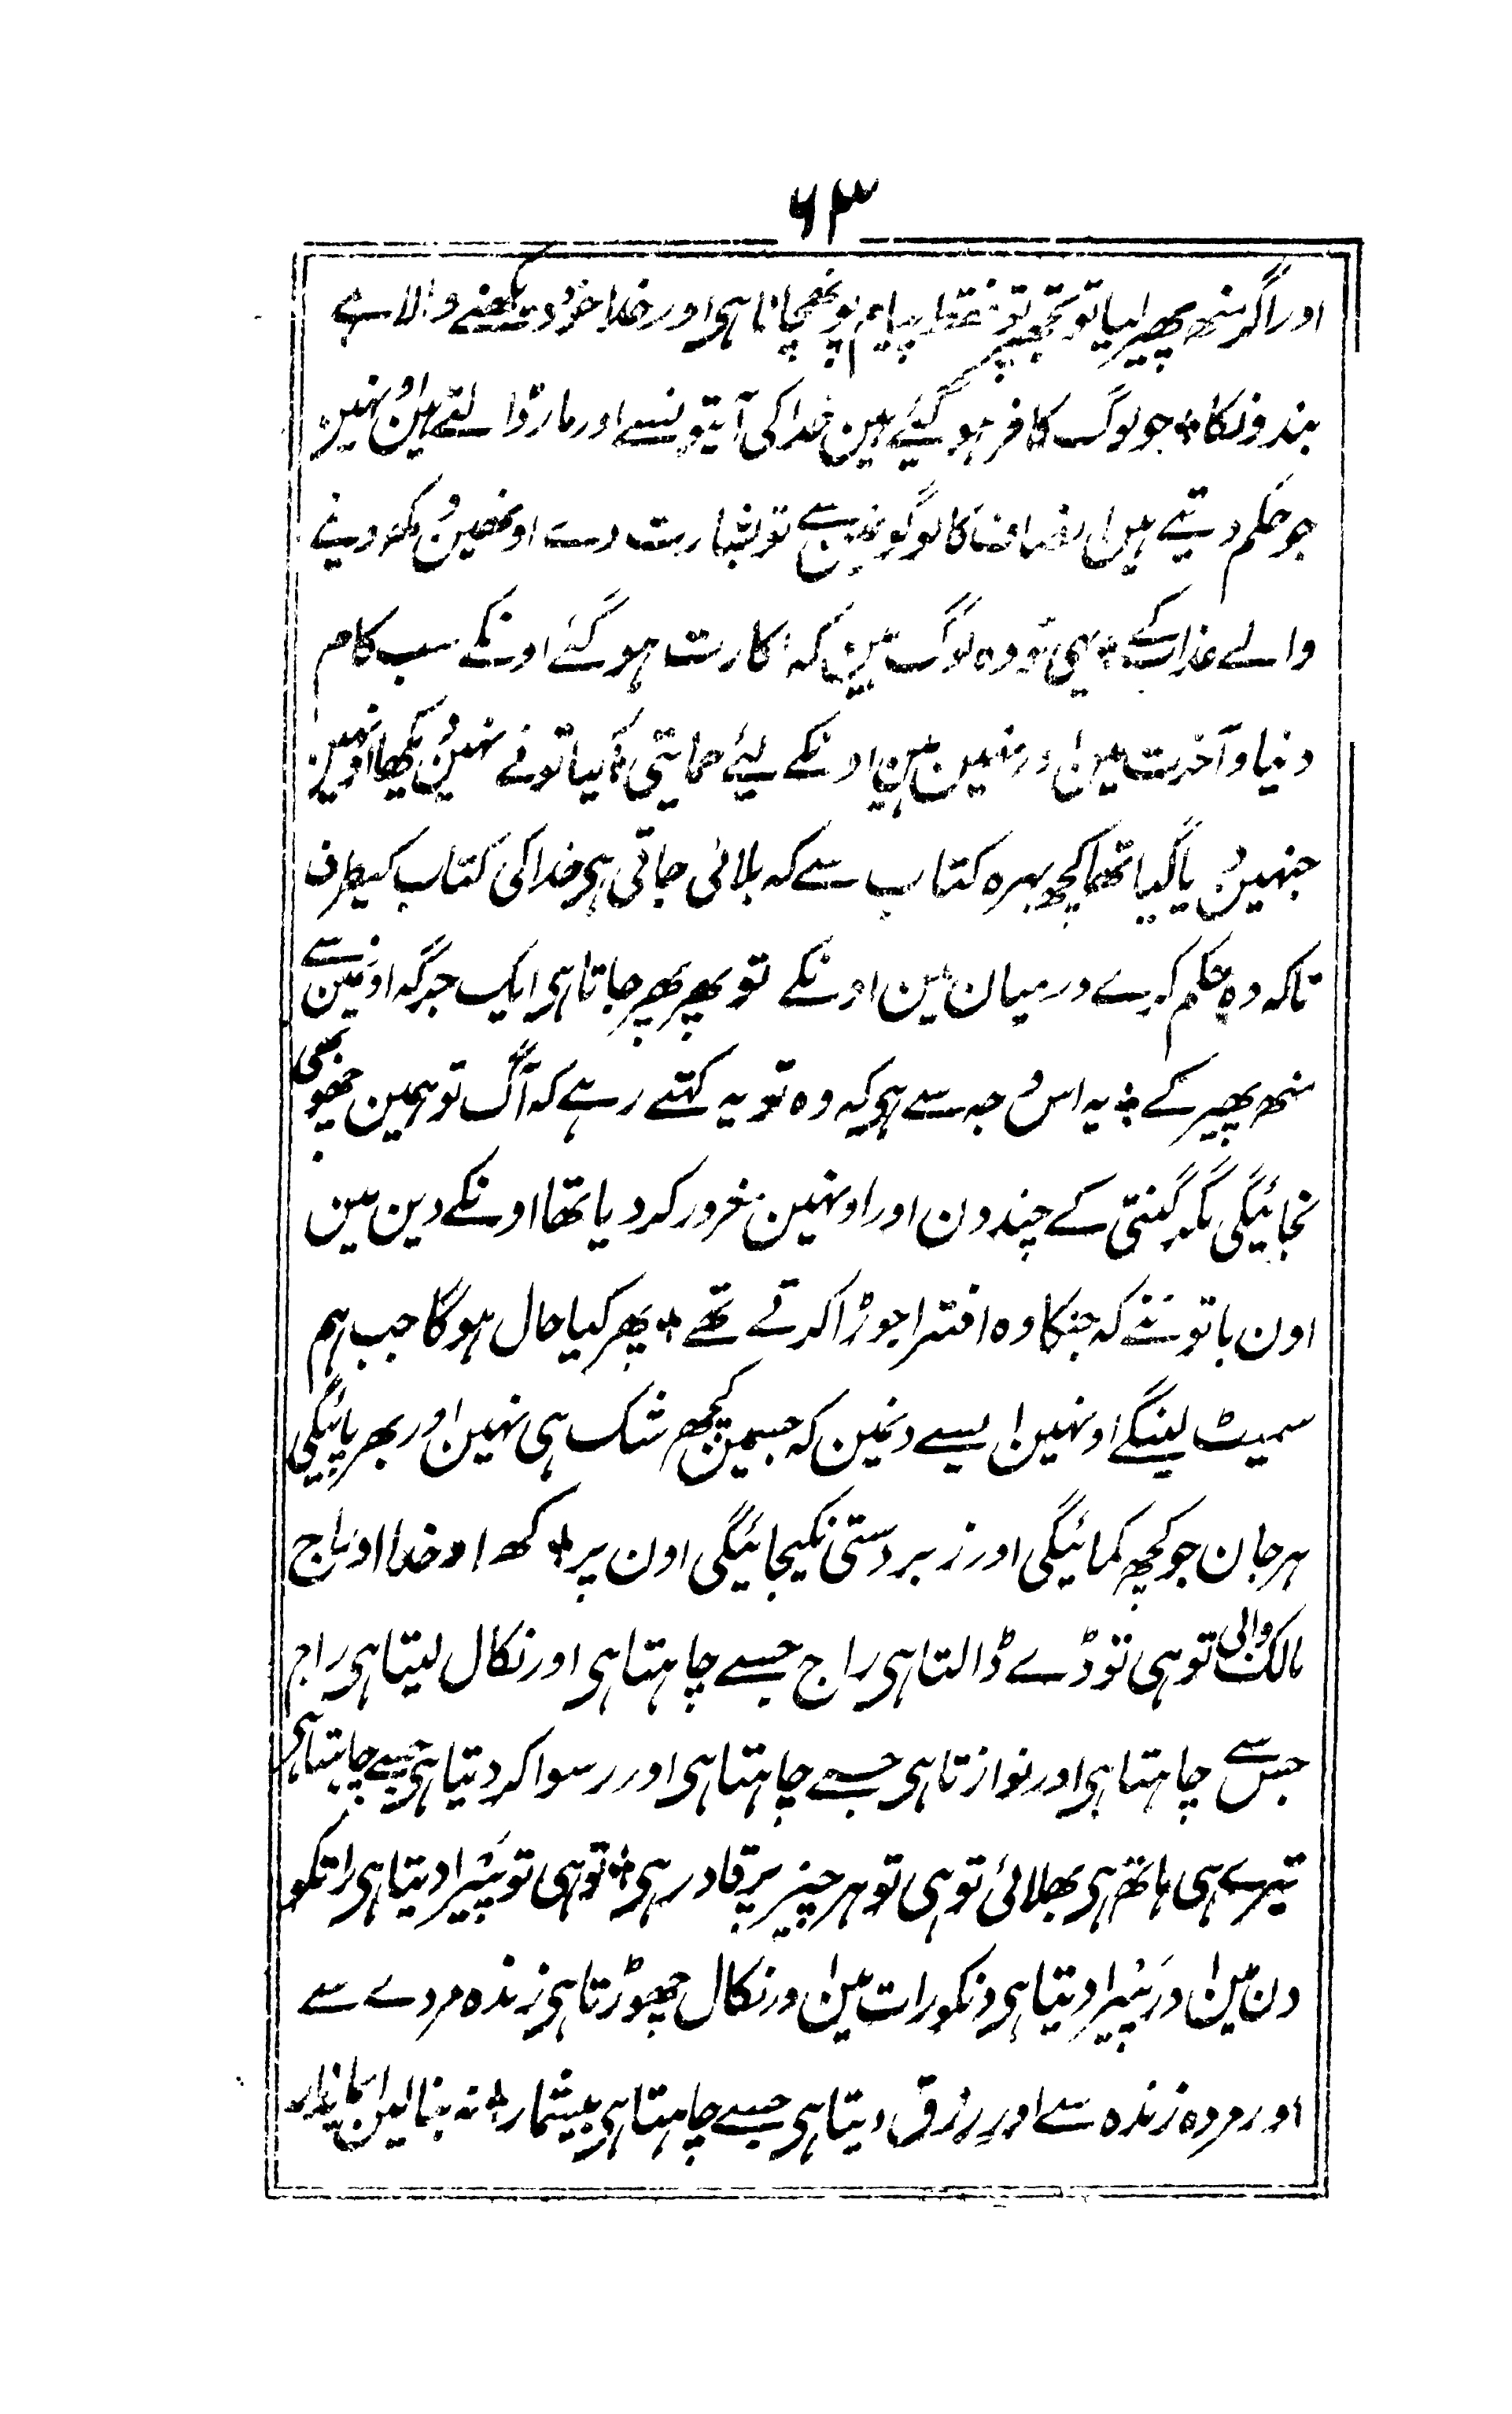 ۶۳
اور اگر منھ پھیر لیا تو تجھپر تو فقط پیام پونھچانا ہی اور خدا خود دیکھنے والا ہے
بندونکا ۞ جو لوگ کافر ہو گیئے ہین خدا کی آیتونسے اور مار ڈالتے ہین اُنہین
جو حکم دیتے ہین انصاف کا لوگونمین سے تو بشارت دے اونھین دُکھ دینے
والے عذاب کے ۞ یہی تو وہ لوگ ہین کہ اکارت ہو گئے اونکے سب کام
دنیا و آخرت مین اور نہین ہین اونکے لیئے حمایتی ۞ کیا تو نے نہین دیکھا اونہین
جنہین دیا گیا تھا کچھ بہرہ کتاب سے کہ بلائی جاتی ہی خدا کی کتاب کیطرف
تاکہ وہ حکم کرے درمیان مین اونکے تو پھر پھر جاتا ہی ایک جرگہ اونمین سے
منھ پھیر کے ۞ یہ اس وجہ سے ہی کہ وہ تو یہ کہتے رہے کہ آگ تو ہمین چھو بھی
نجائیگی مگر گنتی کے چند دن اور اونہین مغرور کر دیا تھا اونکے دین مین
اون باتوننے کہ جنکا وہ افترا جوڑا کرتے تھے ۞ پھر کیا حال ہوگا جب ہم
سمیٹ لینگے اونہین ایسے دنمین کہ جسمین کچھ شک ہی نہین اور بھر پائیگی
ہر جان جو کچھ کمائیگی اور زبردستی نکیجائیگی اون پر ۞ کھ او خدا او راج
والی مالک تو ہی تو دے ڈالتا ہی راج جسے چاہتا ہی اور نکال لیتا ہی راج
جس سے چاہتا ہی اور نوازتا ہی جسے چاہتا ہی اور رسوا کر دیتا ہی جسے چاہتا ہی
تیرے ہی ہاتھ ہی بھلائی تو ہی تو ہر چیز پر قادر ہی ۞ تو ہی تو پیرا دیتا ہی راتکو
دن مین اور پیرا دیتا ہی دنکو رات مین اور نکال چھوڑتا ہی زندہ مردے سے
اور مردہ زندہ سے اور رزق دیتا ہی جسے چاہتا ہی بیشمار ۞ نہ بنا لین ایماندار